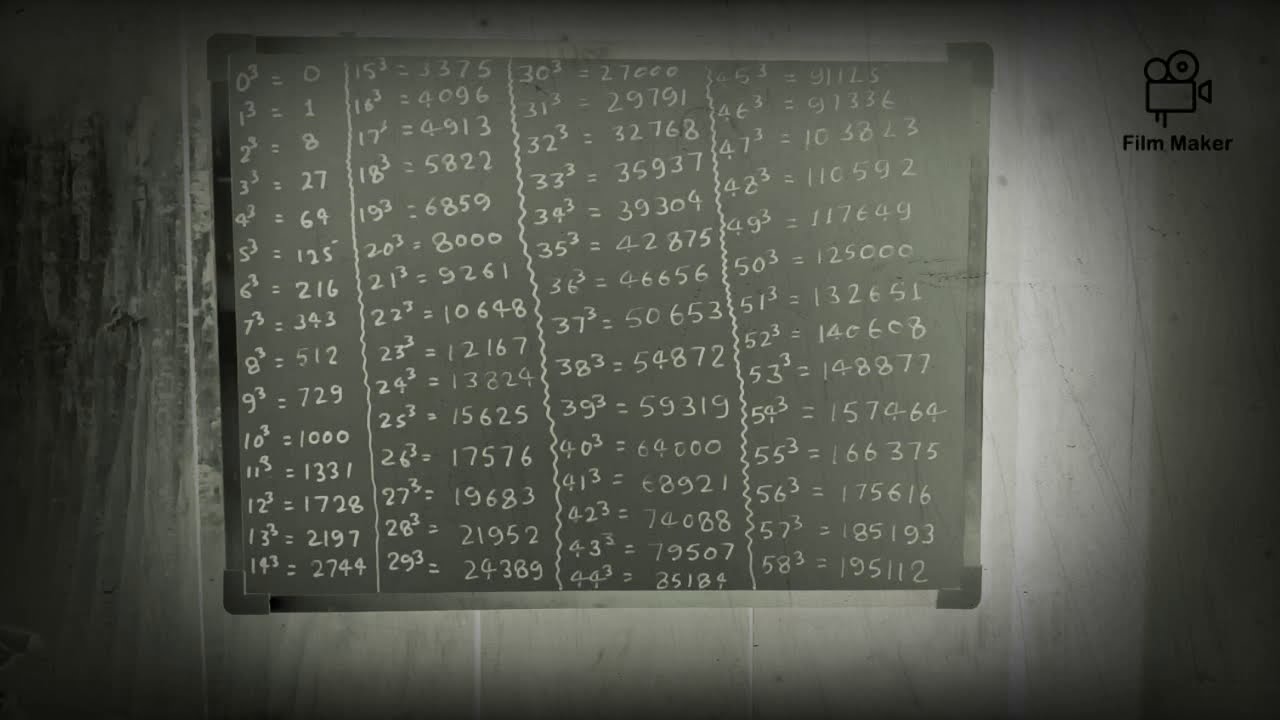 0³ = 0
1³ = 1
2³ = 8
3³ = 27
4³ = 64
5³ = 125
6³ = 216
7³ = 343
8³ = 512
9³ = 729
10³ = 1000
11³ = 1331
12³ = 1728
13³ = 2197
14³ = 2744
15³ = 3375
16³ = 4096
17³ = 4913
18³ = 5822
19³ = 6859
20³ = 8000
21³ = 9261
22³ = 10648
23³ = 12167
24³ = 13824
25³ = 15625
26³ = 17576
27³ = 19683
28³ = 21952
29³ = 24389
30³ = 27000
31³ = 29791
32³ = 32768
33³ = 35937
34³ = 39304
35³ = 42875
36³ = 46656
37³ = 50653
38³ = 54872
39³ = 59319
40³ = 64000
41³ = 68921
42³ = 74088
43³ = 79507
44³ = 85184
45³ = 91125
46³ = 97336
47³ = 103823
48³ = 110592
49³ = 117649
50³ = 125000
51³ = 132651
52³ = 140608
53³ = 148877
54³ = 157464
55³ = 166375
56³ = 175616
57³ = 185193
58³ = 195112
Film Maker